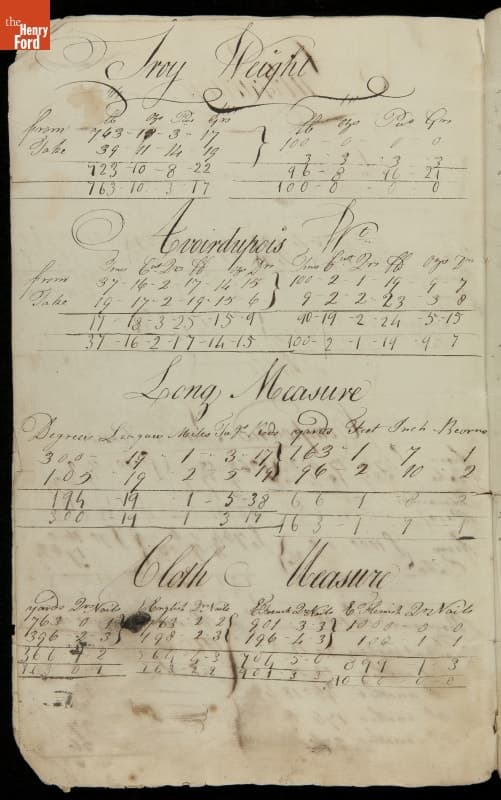 the
Henry
Ford
Troy Weight
lb oz Pw Grs lb ozs Pw Grs
from 763-10-3-17 100-0-0-0
Take 39 11-14 19 3-3-3-3
723-10-8-22 96-8 21
763-10 3-17 100-0-0-0
Avoirdupois Wt
Tns Cwt Qrs lb Ozs Drs Tns Cwt Qrs lb Ozs Drs
from 37-16-2-17-14-15 100-2-1-19-9 7
Take 19-17-2-19-15 6 9 2-2-23-3 8
17-18-3-25-15-9 90-19-2-24-5-15
37-16-2-17-14-15 100-2-1-19-9 7
Long Measure
Degrees Leagues Miles Rods yards Feet Inch Bcorns
300-19-1-3-17 163-1 7 1
105 19 2 5 19 96-2 10 2
194-19-1-5-38 66 1 8 2
300-19 1 3 17 163-1 1
Cloth Measure
yards Qr Nails English Qr Nails French Qr Nails Flemish Qr Nails
763 0 1 763 2 2 901 3-3 1000-0-0
1396 2 3 198 2 3 196-4 3 100 1 1
366 1 2 564 4-3 704 5-0 899 1 3
0 1 901-3 3 0-0